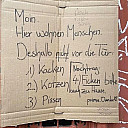 Moin.
Hier wohnen Menschen.
Deshalb nicht vor die Tür:
1) Kacken Nachtrag:
2) Kotzen 4) Ficken bitte
3) Pissen auch zu Hause.
Danke!